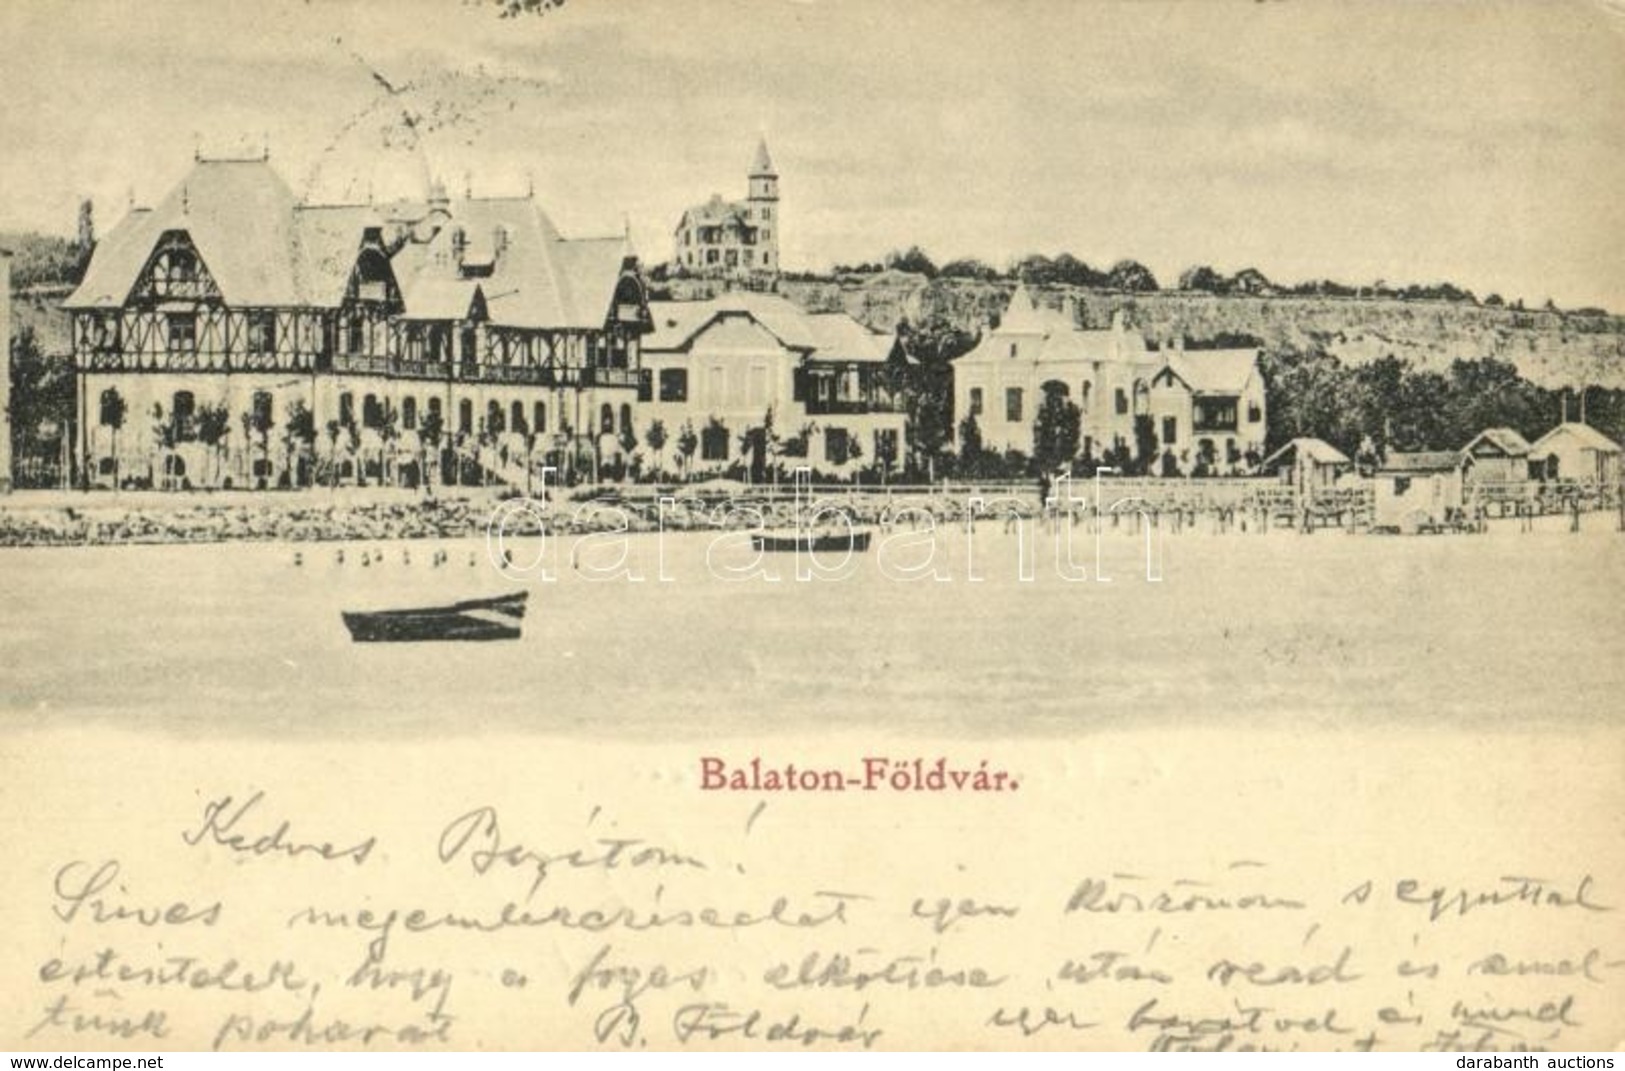 darabanth
Balaton-Földvár.
Kedves Bezitom!
Szives megemlékezésedet igen köszönöm s egyuttal
értesitelek, hogy a fogas elköltése után reád is emel-
tünk poharat. B. Földvár igaz barátod és mind
www.delcampe.net
darabanth auctions